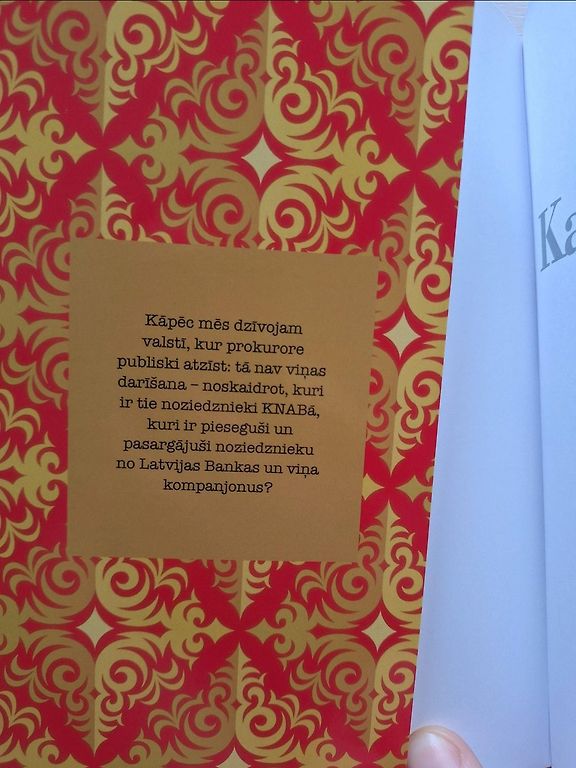 Kāpēc mēs dzīvojam
valstī, kur prokurore
publiski atzīst: tā nav viņas
darīšana – noskaidrot, kuri
ir tie noziedznieki KNABā,
kuri ir pieseguši un
pasargājuši noziedznieku
no Latvijas Bankas un viņa
kompanjonus?